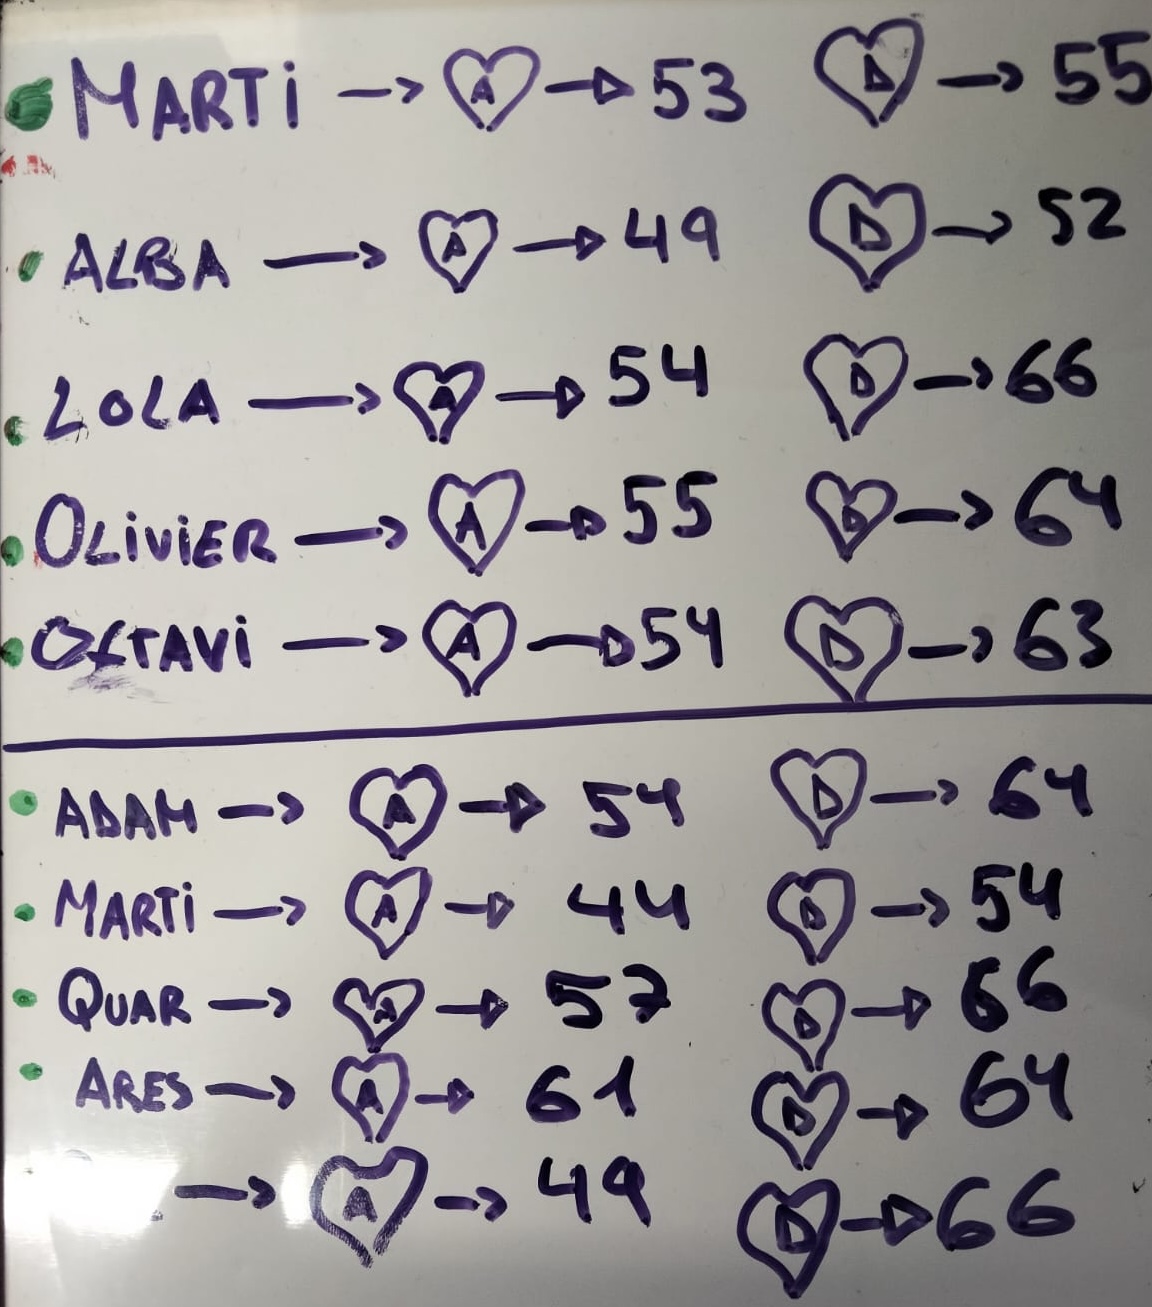 MARTI → A → 53 D → 55
ALBA → A → 49 D → 52
LOLA → A → 54 D → 66
OLIVIER → A → 55 D → 64
OCTAVI → A → 54 D → 63
ADAM → A → 54 D → 64
MARTI → A → 44 D → 54
QUAR → A → 57 D → 66
ARES → A → 61 D → 64
→ A → 49 D → 66